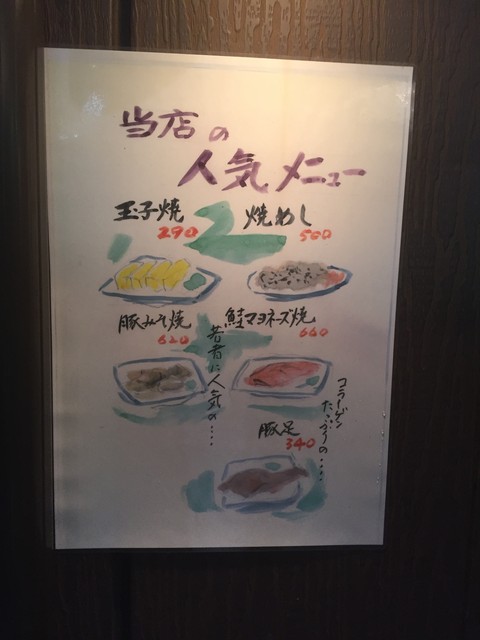 当店の
人気メニュー
玉子焼
290
焼めし
500
豚みそ焼
620
鮭マヨネーズ焼
660
若者に人気の・・・・
コラーゲン
たっぷりの・・・・
豚足
340